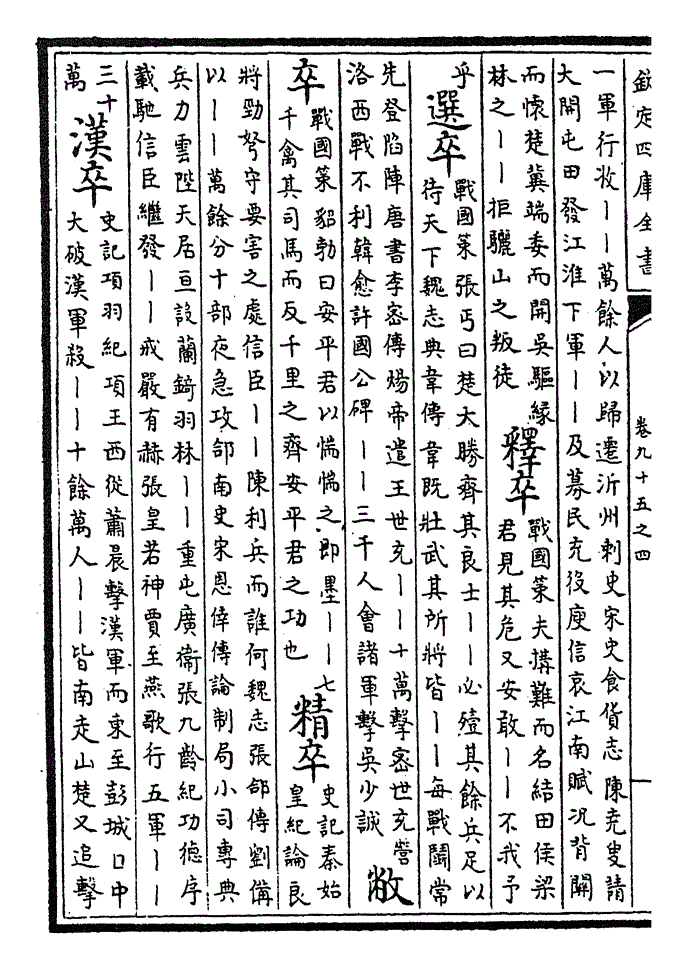 欽定四庫全書
卷九十五之四
一軍行收丨丨萬餘人以歸遷沂州刺史宋史食貨志陳堯叟請
大開屯田發江淮下軍丨丨及募民充役庾信哀江南賦況背關
而懷楚冀端委而開吳驅緣
林之丨丨拒驪山之叛徒
釋卒
戰國策夫搆難而名結田侯梁
君見其危又安敢丨丨不我予
乎
選卒
戰國策張丐曰楚大勝齊其良士丨丨必殪其餘兵足以
待天下魏志典韋傳韋既壯武其所將皆丨丨每戰鬭常
先登陷陣唐書李密傳煬帝遣王世充丨丨十萬擊密世充營
洛西戰不利韓愈許國公碑丨丨三千人會諸軍擊吳少誠
敝
卒
戰國策貂勃曰安平君以惴惴之即墨丨丨七
千禽其司馬而反千里之齊安平君之功也
精卒
史記秦始
皇紀論良
將勁弩守要害之處信臣丨丨陳利兵而誰何魏志張郃傳劉備
以丨丨萬餘分十部夜急攻郃南史宋恩倖傳論制局小司專典
兵力雲陛天居亘設蘭錡羽林丨丨重屯廣衛張九齡紀功德序
載馳信臣繼發丨丨戒嚴有赫張皇若神賈至燕歌行五軍丨丨
三十
萬
漢卒
史記項羽紀項王西從蕭晨擊漢軍而東至彭城日中
大破漢軍殺丨丨十餘萬人丨丨皆南走山楚又追擊